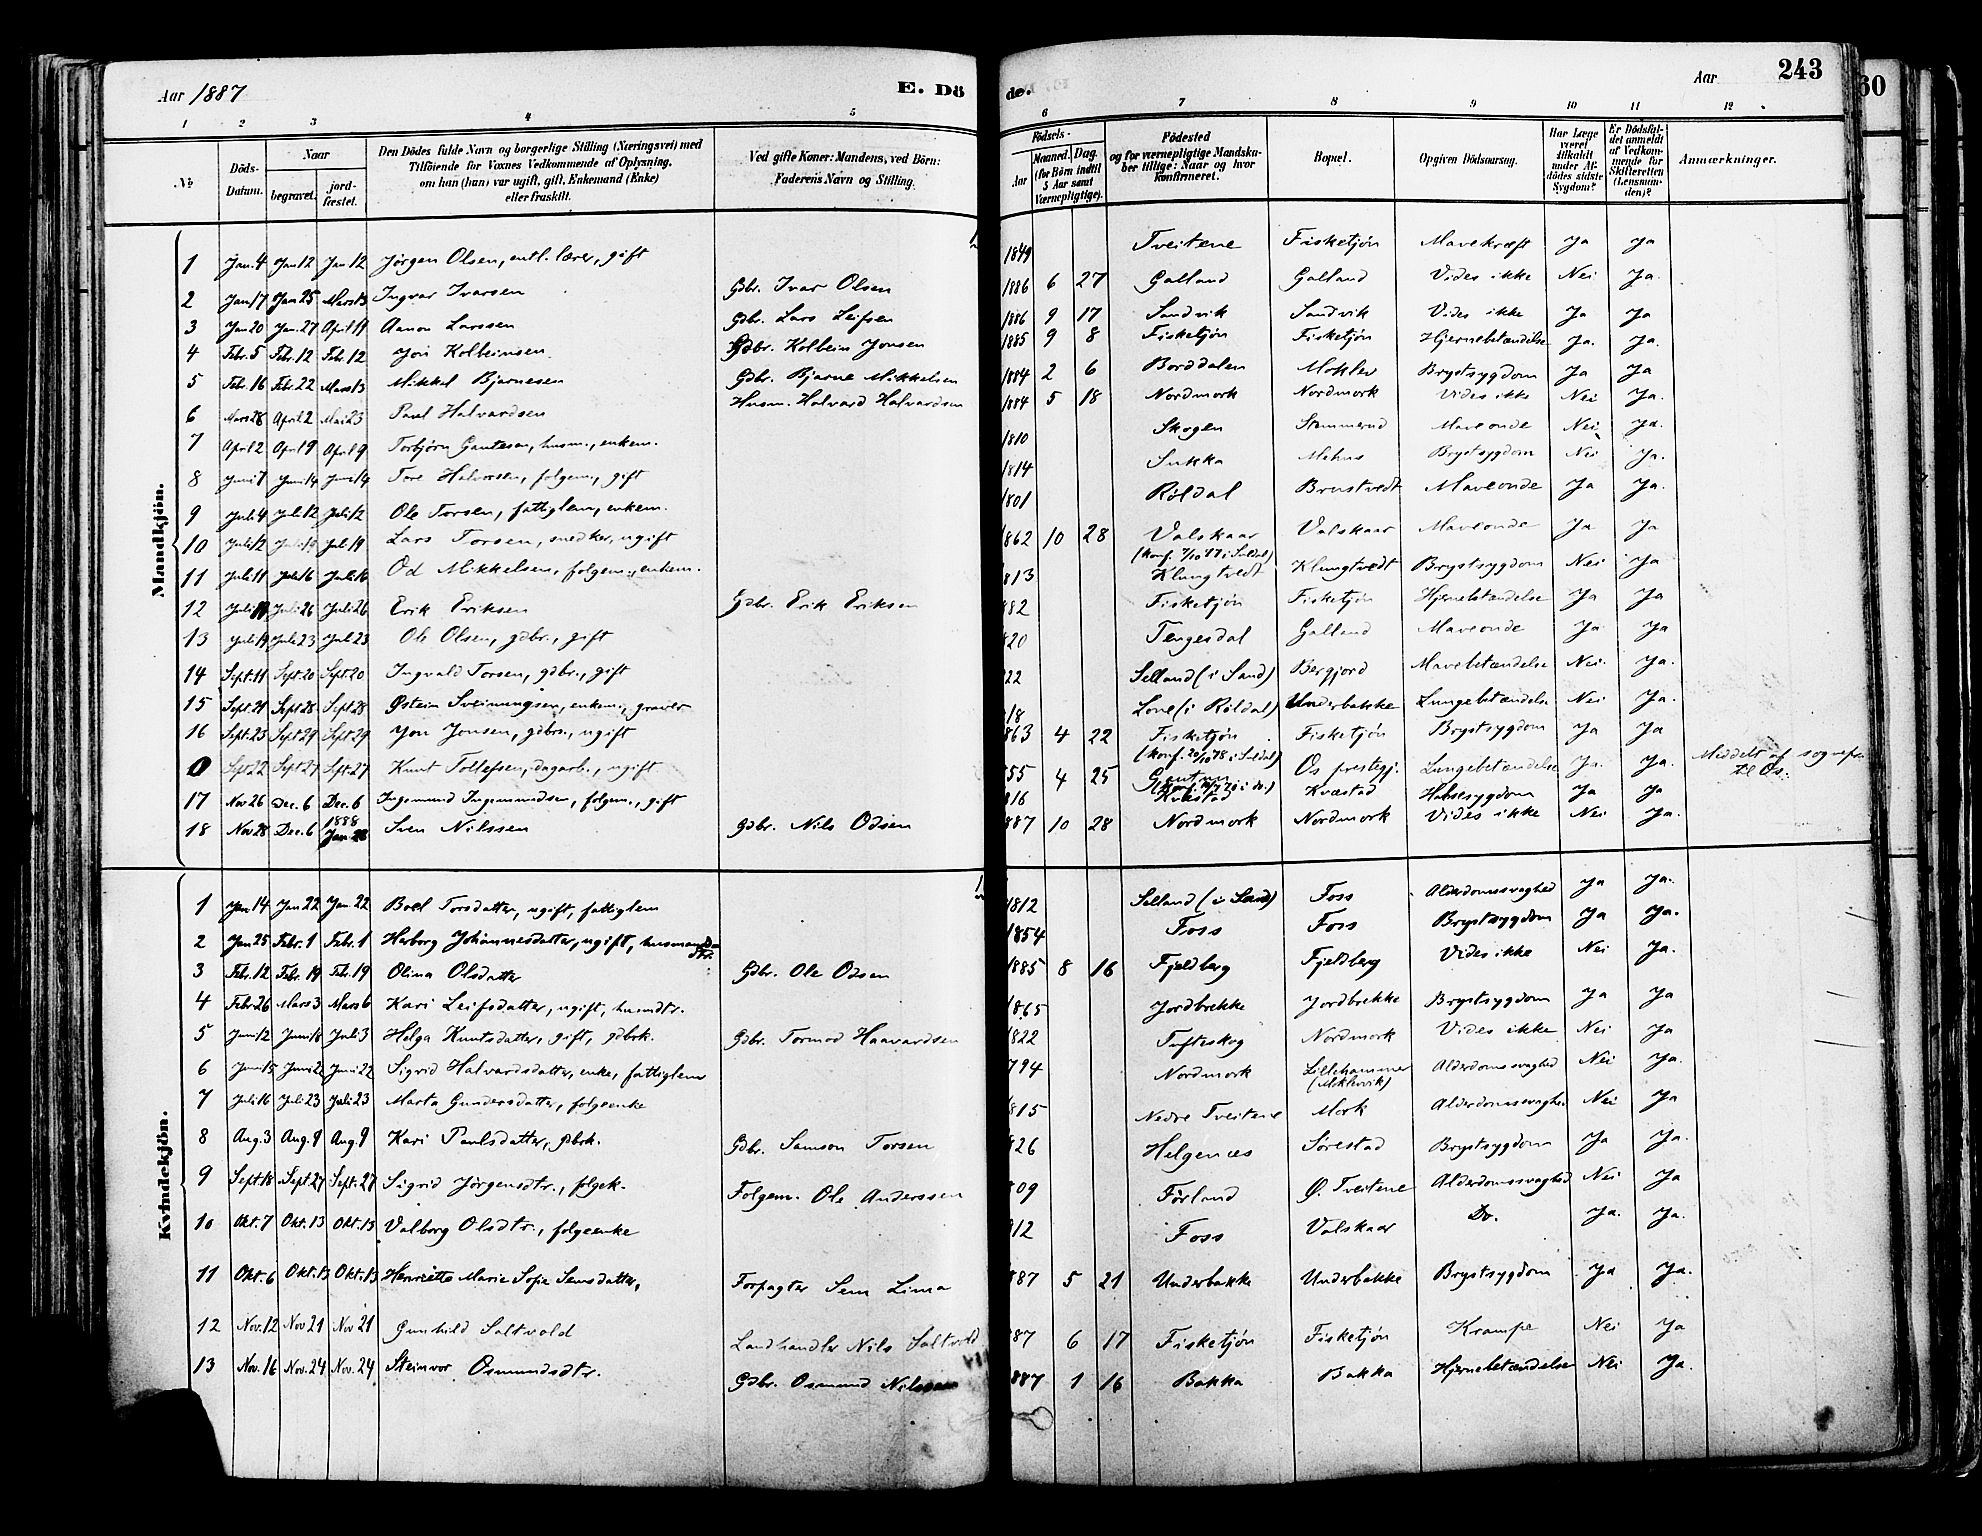 Aar 1887 E. Dö
de. Aar 243
60
1 2 3 4 5 6 7 8 9 10 11 12
№ Döds-Datum. Naar begravet. jord-fæstet. Den Dödes fulde Navn og borgerlige Stilling (Næringsvei) med Tilföiende for Voxnes Vedkommende af Oplysning, om han (hun) var ugift, gift, Enkemand (Enke) eller fraskilt. Ved gifte Koner: Mandens, ved Börn: Faderens Navn og Stilling. Födsels- Aar Maaned. Dag. (for Börn indtil 5 Aar samt Værnepligtige). Födested og for værnepligtige Mandska-ber tillige: Naar og hvor konfirmeret. Bopæl. Opgiven Dödsaarsag. Har Læge været tilkaldt under Af-dödes sidste Sygdom? Er Dödsfal-det anmeldt af Vedkom-mende for Skifteretten (Lensman-den)? Anmærkninger.
Mandkjön.
1 Jan. 4 Jan 12 Jan 12 Jørgen Olsen, entl. lærer, gift 1849 Tveitene Fisketjøn Mavekræft Ja Ja
2 Jan 17 Jan 25 Mars 13 Ingvar Ivarsen Gdbr. Ivar Olsen 1886 6 27 Galland Galland Vides ikke Nei Ja.
3 Jan 20 Jan. 27 April 19 Aanon Larssen Gdbr. Lars Leifsen 1886 9 17 Sandvik Sandvik Vides ikke Ja Ja
4 Febr. 5 Feb. 12 Feb. 12 Jon Kolbeinsen Gdbr. Kolbein Jonsen 1885 9 8 Fisketjøn Fisketjøn Hjernebetændelse Ja. Ja.
5 Feb. 16 Feb. 22 Mars 13 Mikkel Bjarnesen Gdbr. Bjarne Mikkelsen 1884 2 6 Borddalen Moklev Brystsygdom Ja Ja
6 Mars 28 April 2 Mai 23 Paul Halvardsen Husm. Halvard Halvardsen 1884 5 18 Nordmork Nordmork Vides ikke Nei Ja.
7 April 2 April 9 April 9 Torbjørn Gautesen, husm., enkem. 1810 Skogen Stemmerud Maveonde Nei Ja.
8 Juni 7 Juni 14 Juni 14 Tore Halvorsen, folgem., gift 1814 Sukka Mehus Brystsygdom Nei Ja.
9 Juli 4 Juli 12 Juli 12 Ole Torsen, fattiglem, enkem. 1801 Røldal Brustvedt Maveonde Ja Ja.
10 Juli 12 Juli 19 Juli 19 Lars Torsen, snedker, ugift 1862 10 28 Valskaar Valskaar Maveonde Ja Ja
(konf. 7/10 77 i Suldal)
11 Juli 11 Juli 16 Juli 16 Od Mikkelsen, folgem., enkem. 1813 Klungtvedt Klungtvedt Brystsygdom Nei Ja
12 Juli Juli 26 Juli 26 Erik Eriksen Gdbr. Erik Eriksen 882 Fisketjøn Fisketjøn Hjernebetændelse Ja Ja
13 Juli 19 Juli 23 Juli 23 Ole Olsen, gdbr., gift 820 Tengesdal Galland Maveonde Ja Ja
14 Sept. 11 Sept. 20 Sept. 20 Ingvald Torsen, gdbr., gift 22 Selland (i Sand) Bergjord Mavebetændelse Nei. Ja.
15 Sept. 21 Sept 28 Sept 28 Østein Sveinungsen, enkem., graver 18 Lone (i Røldal) Underbakke Lungebetændelse Nei Ja.
16 Sept. 23 Sept 29 Sept. 29 Jon Jonsen, gdbrs., ugift 863 4 22 Fisketjøn Fisketjøn Brystsygdom Ja Ja
(konf. 20/10 78 i Suldal)
0 Sept 22 Sept 27 Sept. 27 Knut Tollefsen, dagarb., ugift. 55 4 25 Os prestegj. Lungebetændelse Ja. Ja. Meddelt af sognepr. til Os.
17 Nov 26 Dec. 6 Dec. 6 Ingemund Ingemundsen, folgem., gift 816 Kvæstad Kvæstad Halsesygdom Ja Ja
18 Nov 28 Dec. 6 1888 Jan 28 Sven Nilssen Gdbr. Nils Odsen 887 10 28 Nordmork Nordmork Vides ikke Nei Ja.
Kvindekjön.
1 Jan 14 Jan 22 Jan 22 Boel Torsdatter, ugift, fattiglem 1812 Selland (i Sand) Foss Alderdomssvaghed Ja Ja.
2 Jan 25 Febr. 1 Febr. 1 Herborg Johannesdatter, ugift, husmandsdtr. 1854 Foss Foss Brystsygdom Ja Ja.
3 Febr. 12 Febr. 19 Febr. 19 Olina Olsdatter Gdbr. Ole Odsen 1885 8 16 Fjeldberg Fjeldberg Vides ikke Nei Ja.
4 Febr. 26 Mars 3 Mars 6 Kari Leifsdatter, ugift, husmdtr. 1865 Jordbrekke Jordbrekke Brystsygdom Ja Ja
5 Juni 12 Juni 18 Juli 3 Helga Knutsdatter, gift, gdbrk. Gdbr. Tormod Haavardsen 1822 Tufteskog Nordmork Vides ikke Nei Ja
6 Juni 15 Juni 22 Juni 22 Sigrid Halvardsdatter, enke, fattiglem 794 Nordmork Lillehammer (Moklevik) Alderdomssvaghed Nei Ja.
7 Juli 16 Juli 23 Juli 23 Marta Gundersdatter, folgeenke 815 Nedre Tveitene Mork Alderdomssvaghed Nei Ja
8 Aug. 3 Aug. 9 Aug. 9 Kari Paulsdatter, gdbrk. Gdbr. Samson Torsen 826 Helgenæs Sørestad Brystsygdom Ja Ja.
9 Sept. 18 Sept. 27 Sept. 27 Sigrid Jørgensdtr., folgek. Folgem. Ole Anderssen 809 Førland Ø. Tveitene Alderdomssvaghed Nei Ja
10 Okt. 7 Okt. 13 Okt. 13 Valborg Olsdtr., folgeenke 812 Foss Valskaar Do. Ja. Ja.
11 Okt. 6 Okt. 13 Okt. 13 Henriette Marie Sofie Semsdatter, Forpagter Sem Lima 887 5 21 Underbakke Underbakke Brystsygdom Ja Ja.
12 Nov. 12 Nov 21 Nov 21 Gunhild Saltvold Landhandler Nils Saltvold 87 6 17 Fisketjøn Fisketjøn Krampe Nei Ja
13 Nov. 16 Nov. 24 Nov. 24 Steinvor Osmundsdtr. Gdbr. Osmund Nilssen 887 1 16 Bakka Bakka Hjernebetændelse Nei Ja.